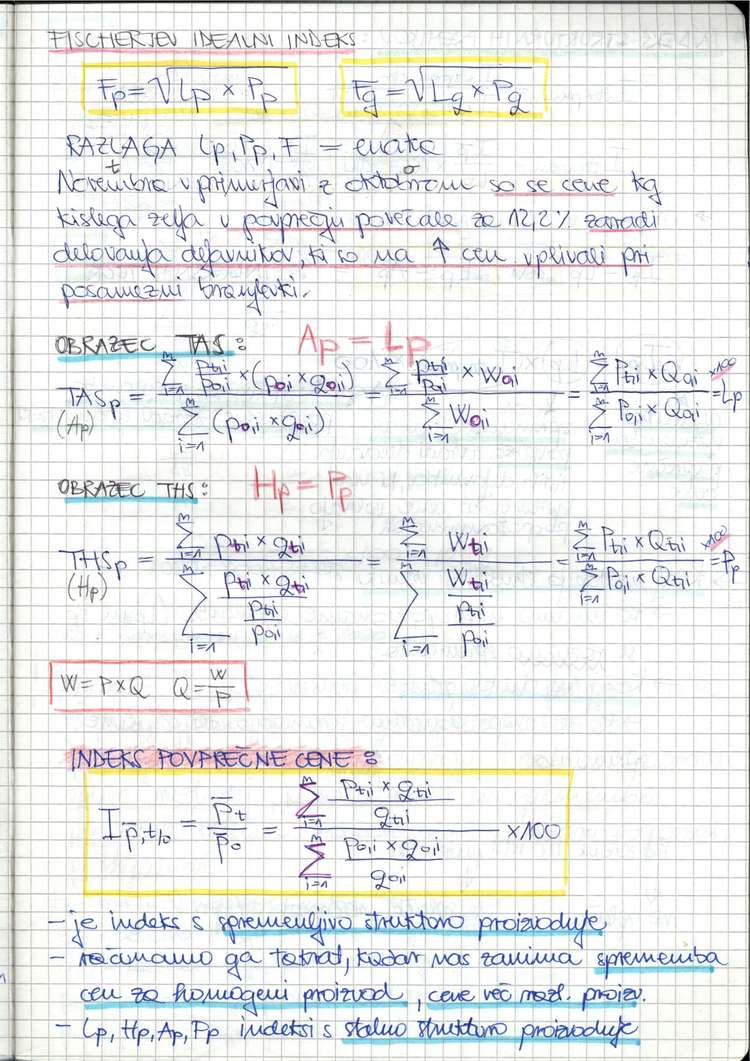 FISCHERJEV IDEALNI INDEKS
Fp = √Lp × Pp    Fg = √Lg × Pg
RAZLAGA Lp, Pp, F = enaka
t    o
Novembra v primerjavi z oktobrom so se cene kg
kislega zelja v povprečju povečale za 12,2% zaradi
delovanja dejavnikov, ki so na ↑ cen vplivali pri
posamezni branjevki.
OBRAZEC TAS:    Ap = Lp
TASp (Ap) = Σ(i=1..m) pt,i/p0,i × (p0,i × q0,i) / Σ(i=1..m) (p0,i × q0,i) = Σ(i=1..m) pt,i/p0,i × W0,i / Σ(i=1..m) W0,i = Σ(i=1..m) Pt,i × Q0,i / Σ(i=1..m) P0,i × Q0,i ×100 = Lp
OBRAZEC THS:    Hp = Pp
THSp (Hp) = Σ(i=1..m) pt,i × qt,i / Σ(i=1..m) (pt,i × qt,i / (pt,i/p0,i)) = Σ(i=1..m) Wt,i / Σ(i=1..m) (Wt,i / (pt,i/p0,i)) = Σ(i=1..m) Pt,i × Qt,i / Σ(i=1..m) P0,i × Qt,i ×100 = Pp
W = P × Q    Q = W/P
INDEKS POVPREČNE CENE:
I p̄,t/0 = p̄t / p̄0 = Σ(i=1..m) (pt,i × qt,i / qt,i) / Σ(i=1..m) (p0,i × q0,i / q0,i) × 100
- je indeks s spremenljivo strukturo proizvodnje
- računamo ga takrat, kadar nas zanima sprememba
cen za homogeni proizvod, cene več razl. proizv.
- Lp, Hp, Ap, Pp indeksi s stalno strukturo proizvodnje